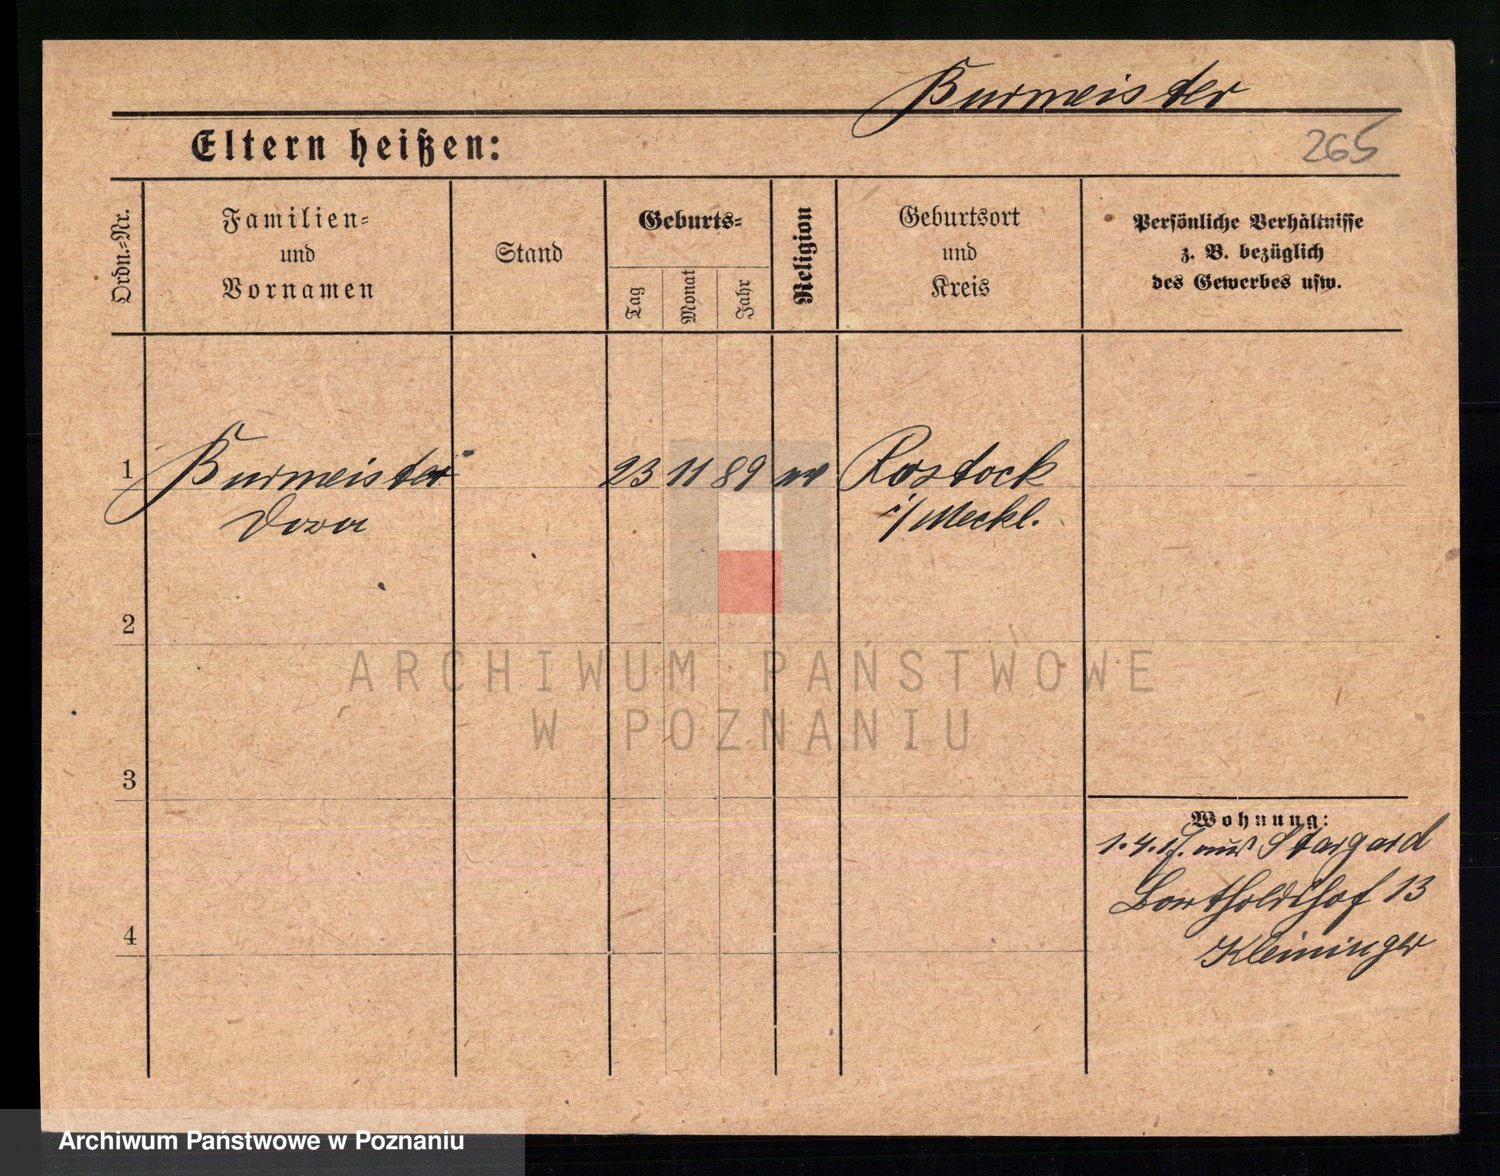 Burmeister
Eltern heißen:
265
Ordn.=Nr.
Familien=
und
Vornamen
Stand
Geburts=
Tag
Monat
Jahr
Religion
Geburtsort
und
Kreis
Persönliche Verhältnisse
z. B. bezüglich
des Gewerbes usw.
1 Burmeister 23 11 89 Rostock
Dora i/Meckl.
2
3
4
Wohnung:
1.4.17. aus Stargard
Bartholdshof 13
Kleininger
ARCHIWUM PAŃSTWOWE
W POZNANIU
Archiwum Państwowe w Poznaniu